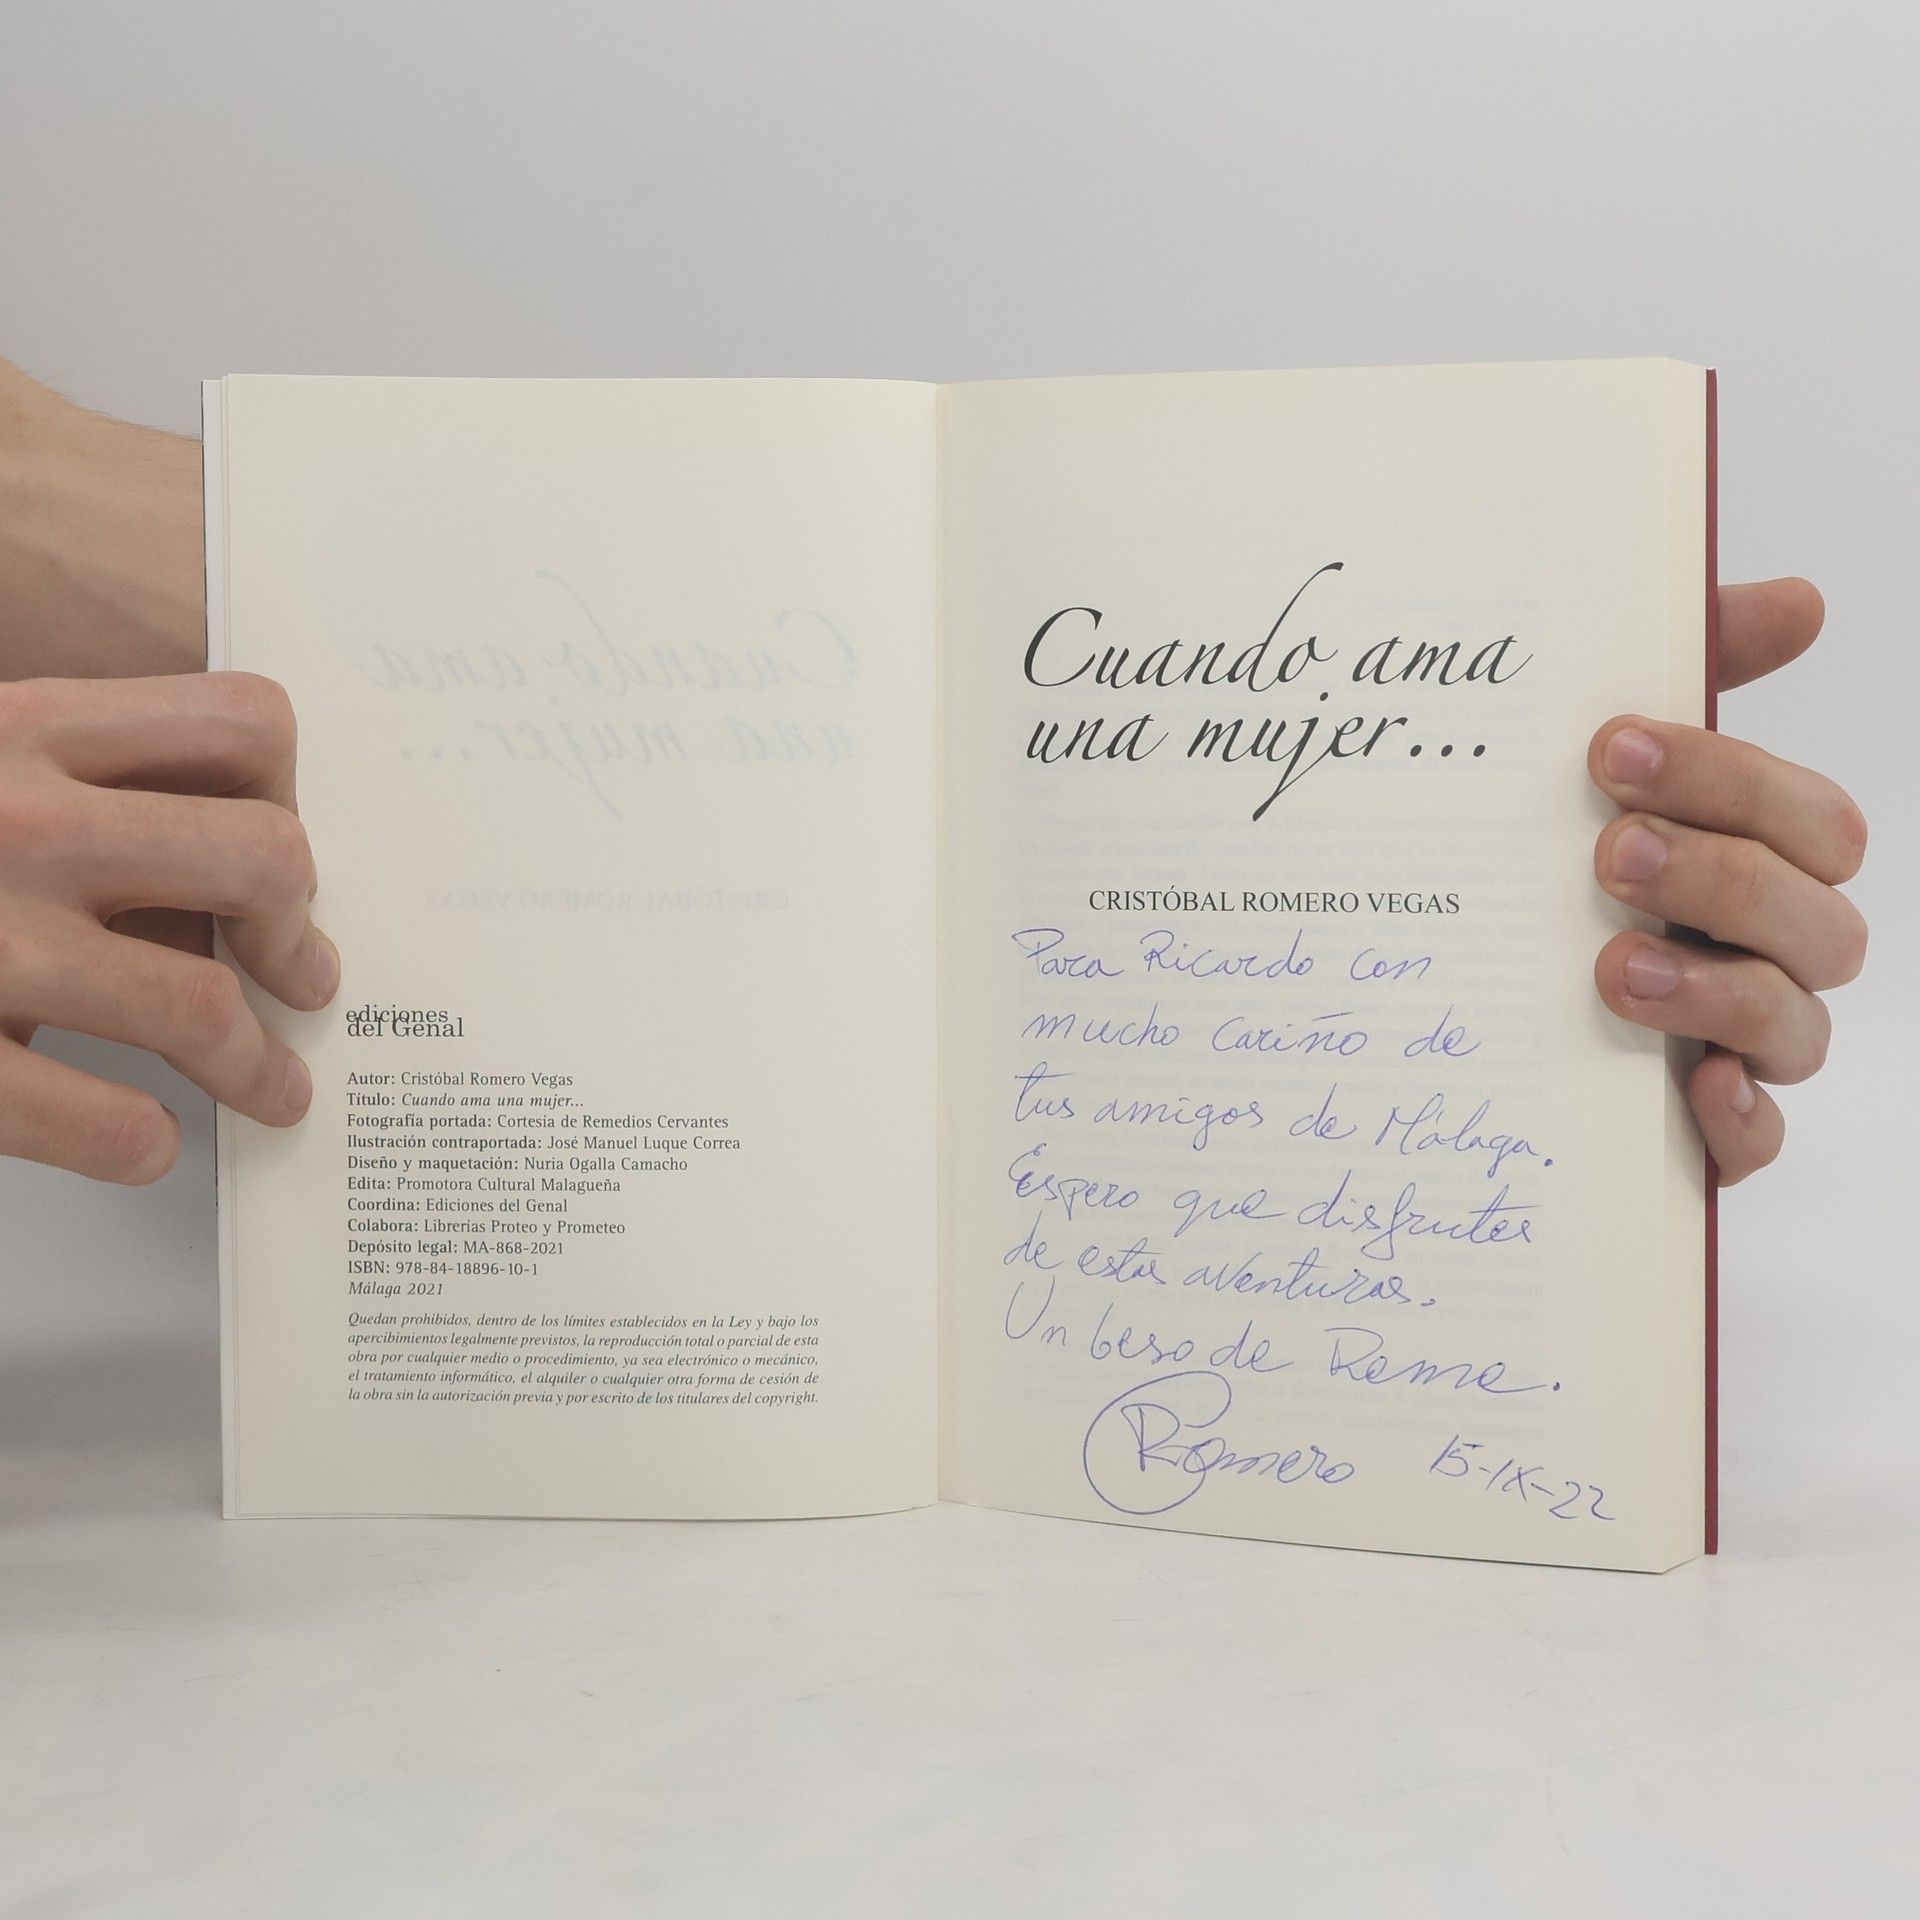 ediciones
del Genal
Autor: Cristóbal Romero Vegas
Título: Cuando ama una mujer...
Fotografía portada: Cortesía de Remedios Cervantes
Ilustración contraportada: José Manuel Luque Correa
Diseño y maquetación: Nuria Ogalla Camacho
Edita: Promotora Cultural Malagueña
Coordina: Ediciones del Genal
Colabora: Librerías Proteo y Prometeo
Depósito legal: MA-868-2021
ISBN: 978-84-18896-10-1
Málaga 2021
Quedan prohibidos, dentro de los límites establecidos en la Ley y bajo los
apercibimientos legalmente previstos, la reproducción total o parcial de esta
obra por cualquier medio o procedimiento, ya sea electrónico o mecánico,
el tratamiento informático, el alquiler o cualquier otra forma de cesión de
la obra sin la autorización previa y por escrito de los titulares del copyright.
Cuando ama
una mujer...
CRISTÓBAL ROMERO VEGAS
Para Ricardo con
mucho cariño de
tus amigos de Málaga.
Espero que disfrutes
de estas aventuras.
Un beso de Reme.
Romero 15-IX-22